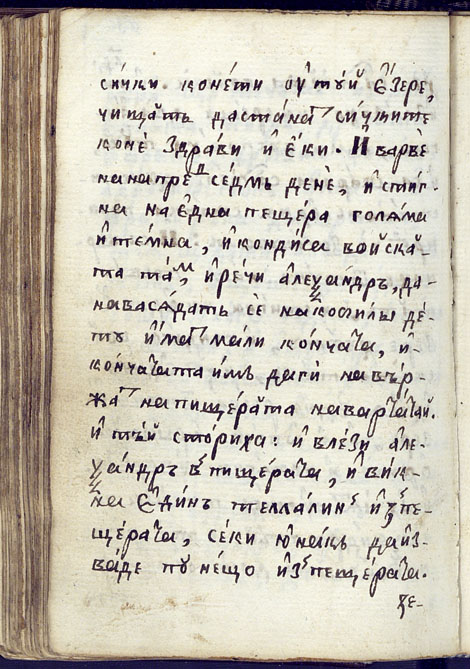 си́чки коне́ти ѹ туй е҆́зере,
чи щатъ даста́натъ си́чките
конѐ здра́ви и҆ е҆́ки. И҆ варве́
нанапре́д се́дмь денѐ, и҆ сти́г-
на на е҆дна пеще́ра голѧ́ма
и҆ те́мна, и҆ конди́са войска́-
та та́м, и҆ ре́чи але҆ѯа́ндръ, да-
навася́дать сѐ на кобилы де́-
ту и҆́мат ма́ли ко́нчата, и҆-
ко́нчатата имъ даги̂ навъ́р-
жат на пище́рата наварта́тай.
и҆ тъй сто́риха: и҆ вле́зи але҆-
ѯа́ндръ в пище́рата, и҆ ви́к-
на е҆ди́нъ теллалин и҆з пе-
ще́рата, се́ки ю҆на́къ даиз-
ва́де по не́що и҆з пеще́рата.
зе-